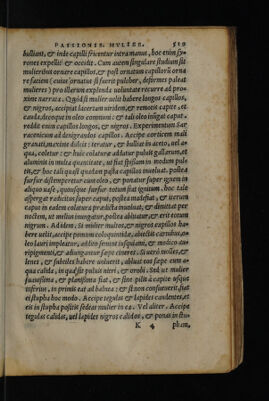 PASSIONES MVLIER. 519
bulliant, & inde capilli fricentur intra manus, hoc enim fu-
rores expellit & occidit. Cum autem singulare studium sit
mulieribus ornare capillos, & post ornatum capillorū orna-
re faciem
mulieres) pro illarum explenda voluntate recurre ad pro-
xime narrata. Quòd si mulier velit habere longos capillos,
& nigros, accipiat lacertam viridem, & remoto capite, &
cauda, decoquat in oleo communi & tali oleo inligat caput.
reddit enim capillos longos, & nigros. Experimentum Sar-
racenicum ad denigrandos capillos. Accipe corticem mali
granati, mezine dulcis: teratur, & bulliat in aceto, vel a-
qua, coletur: & huic colaturæ addatur puluis gallarum, &
aluminis in multa quantitate, ut fiat spissum in modum pul-
tis, & hoc tali quasi quodam pasta capillos inuoluat. postea
furfur distemperetur cum oleo, & ponatur super ignem in
aliquo vase, quousque furfur totum fiat ignitum. hoc tale
aspergat radicitus super caput, postea madefiat, & iterum
caput in eadem colatura prædicta inuoluat, & dimittat per
noctem, ut melius inungatur, postea abluatur, & erit totum
nigrum. Ad idem. Si mulier multos, & nigros capillos ha
bere uelit, accipe pomum coloquintidæ, abiectis carnibus, de
oleo lauri impleatur, addito semine iusquiami, & modico au-
ripigmenti, & abungantur sæpe cineres. Si uerò molles, &
lenes, & subtiles habere uoluerit, abluat eos sæpe cum a-
qua calida, in qua sit puluis nitri, & orobi. Sed ut mulier
suauissima, & planissima fiat, & sine pilis à capite usque
inferius, in primis eat ad balnea: & si non consueuerit, fiat
ei stupha hoc modo. Accipe tegulas & lapides candentes, et
eis in stupha positis sedeat mulier in ea. Vel aliter. Accipe
tegulas calidas, uel lapides nigros calidos, & ponas in stu-
K 4 pham,